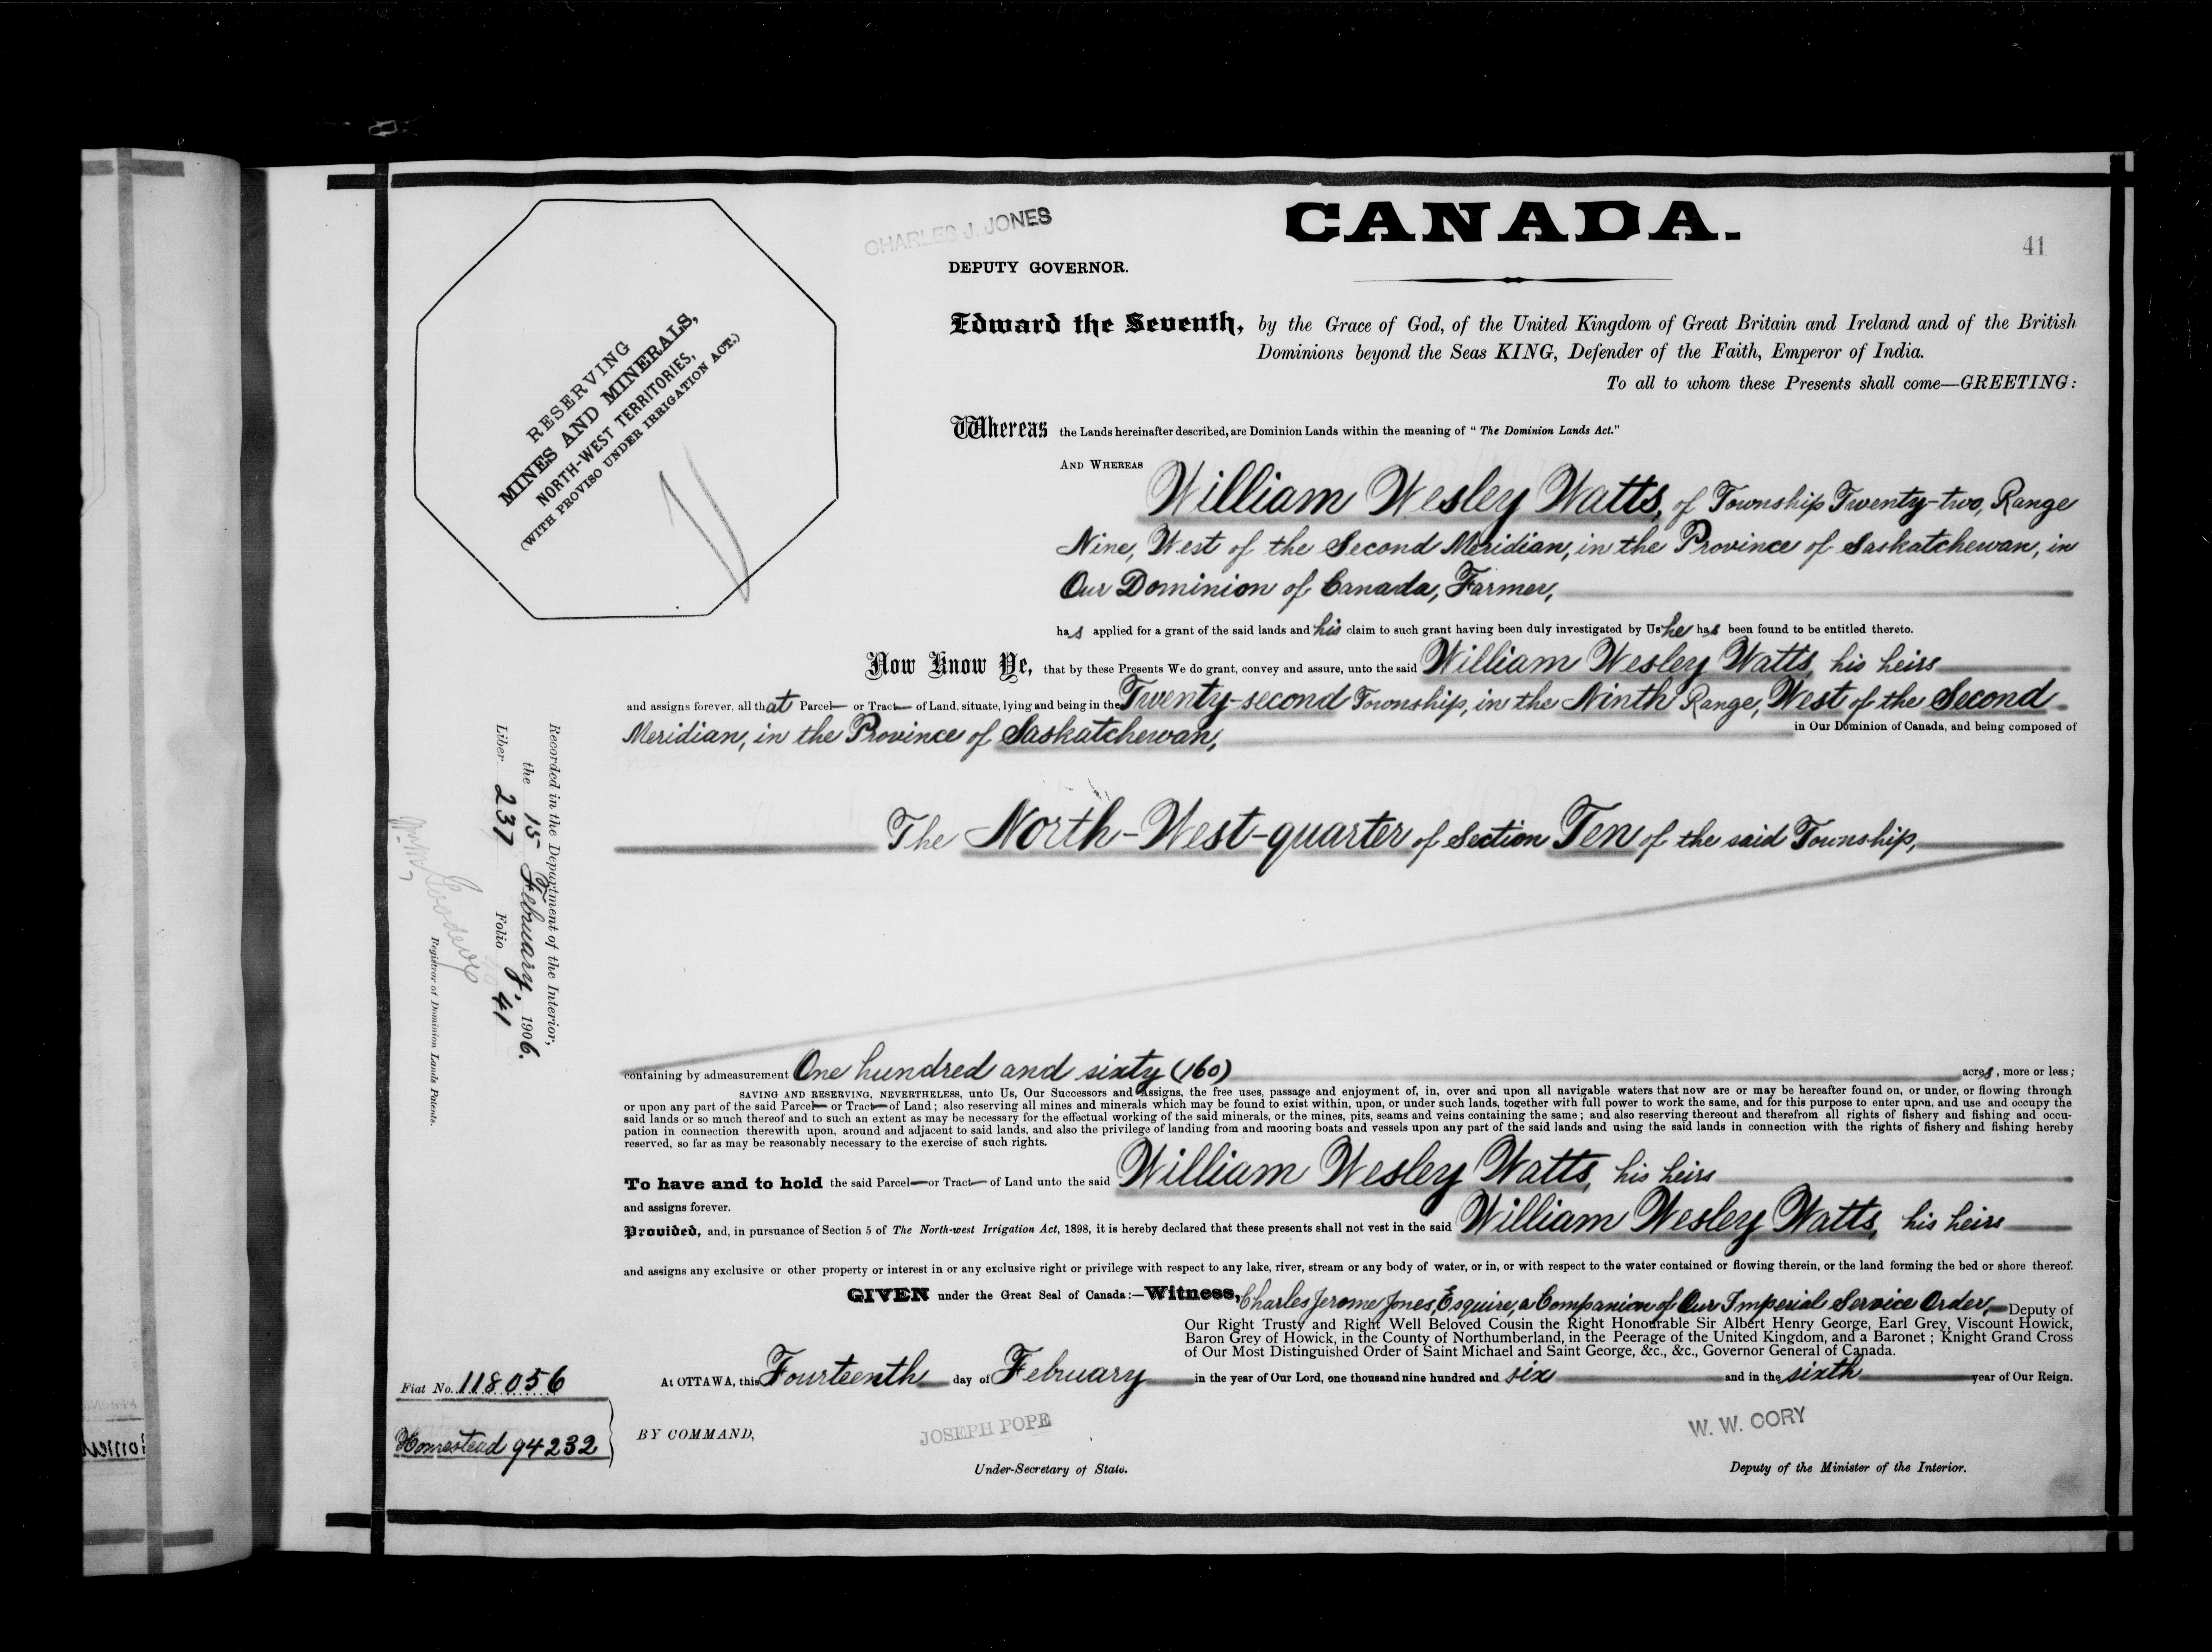 CHARLES J. JONES
CANADA.
41
DEPUTY GOVERNOR.
RESERVING
MINES AND MINERALS,
NORTH-WEST TERRITORIES,
(WITH PROVISO UNDER IRRIGATION ACT.)
Edward the Seventh, by the Grace of God, of the United Kingdom of Great Britain and Ireland and of the British
Dominions beyond the Seas KING, Defender of the Faith, Emperor of India.
To all to whom these Presents shall come—GREETING:
Whereas the Lands hereinafter described, are Dominion Lands within the meaning of "The Dominion Lands Act."
AND WHEREAS
William Wesley Watts, of Township Twenty-two, Range
Nine, West of the Second Meridian, in the Province of Saskatchewan, in
Our Dominion of Canada, Farmer,
has applied for a grant of the said lands and his claim to such grant having been duly investigated by Us he has been found to be entitled thereto.
Now Know Ye, that by these Presents We do grant, convey and assure, unto the said William Wesley Watts, his heirs
and assigns forever, all that Parcel— or Tract— of Land, situate, lying and being in the Twenty-second Township, in the Ninth Range, West of the Second
Meridian, in the Province of Saskatchewan, in Our Dominion of Canada, and being composed of
The North-West-quarter of Section Ten of the said Township,
containing by admeasurement One hundred and sixty (160) acres, more or less;
SAVING AND RESERVING, NEVERTHELESS, unto Us, Our Successors and Assigns, the free uses, passage and enjoyment of, in, over and upon all navigable waters that now are or may be hereafter found on, or under, or flowing through
or upon any part of the said Parcel— or Tract— of Land; also reserving all mines and minerals which may be found to exist within, upon, or under such lands, together with full power to work the same, and for this purpose to enter upon, and use and occupy the
said lands or so much thereof and to such an extent as may be necessary for the effectual working of the said minerals, or the mines, pits, seams and veins containing the same; and also reserving thereout and therefrom all rights of fishery and fishing and occu-
pation in connection therewith upon, around and adjacent to said lands, and also the privilege of landing from and mooring boats and vessels upon any part of the said lands and using the said lands in connection with the rights of fishery and fishing hereby
reserved, so far as may be reasonably necessary to the exercise of such rights.
To have and to hold the said Parcel— or Tract— of Land unto the said William Wesley Watts, his heirs
and assigns forever.
Provided, and, in pursuance of Section 5 of The North-west Irrigation Act, 1898, it is hereby declared that these presents shall not vest in the said William Wesley Watts, his heirs
and assigns any exclusive or other property or interest in or any exclusive right or privilege with respect to any lake, river, stream or any body of water, or in, or with respect to the water contained or flowing therein, or the land forming the bed or shore thereof.
GIVEN under the Great Seal of Canada:—Witness, Charles Jerome Jones, Esquire, a Companion of Our Imperial Service Order, Deputy of
Our Right Trusty and Right Well Beloved Cousin the Right Honourable Sir Albert Henry George, Earl Grey, Viscount Howick,
Baron Grey of Howick, in the County of Northumberland, in the Peerage of the United Kingdom, and a Baronet; Knight Grand Cross
of Our Most Distinguished Order of Saint Michael and Saint George, &c., &c., Governor General of Canada.
At OTTAWA, this Fourteenth day of February in the year of Our Lord, one thousand nine hundred and six and in the sixth year of Our Reign.
BY COMMAND,
JOSEPH POPE
Under-Secretary of State.
W. W. CORY
Deputy of the Minister of the Interior.
Recorded in the Department of the Interior,
the 15 February, 1906.
Liber 237 Folio 41
Registrar of Dominion Lands Patents.
Fiat No. 118056
Homestead 94232